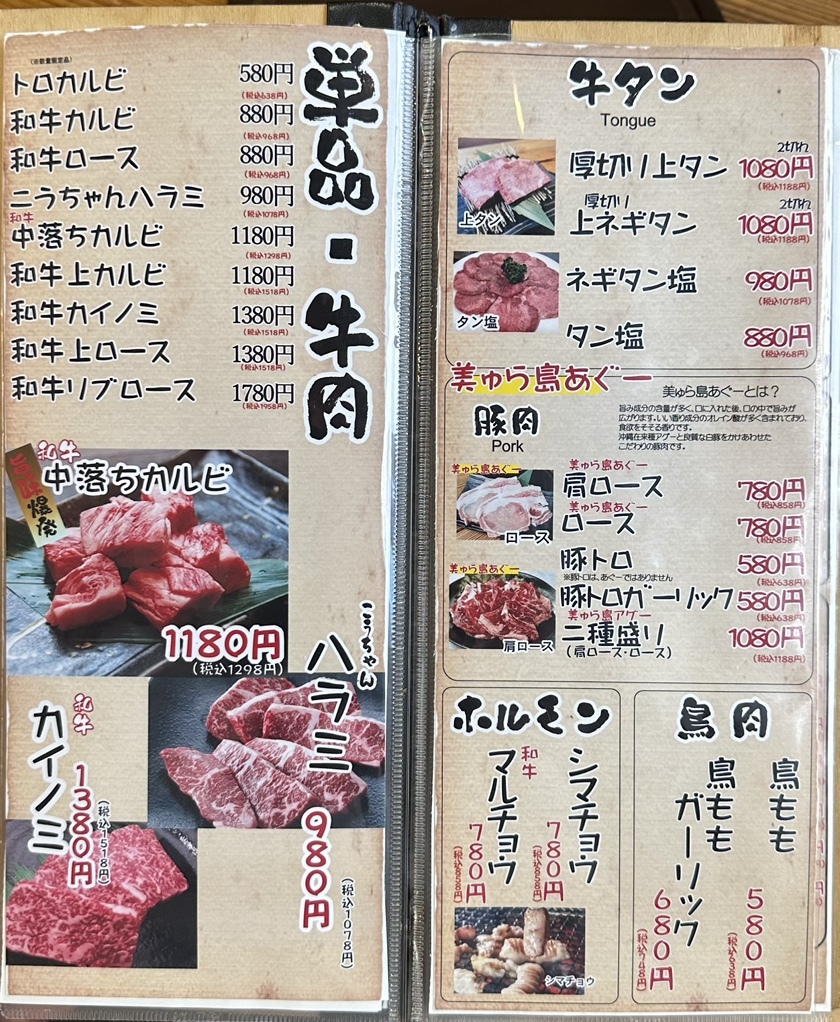 単品・牛肉
(※数量限定品)
トロカルビ 580円
(税込638円)
和牛カルビ 880円
(税込968円)
和牛ロース 880円
(税込968円)
こうちゃんハラミ 980円
(税込1078円)
和牛
中落ちカルビ 1180円
(税込1298円)
和牛上カルビ 1180円
(税込1518円)
和牛カイノミ 1380円
(税込1518円)
和牛上ロース 1380円
(税込1518円)
和牛リブロース 1780円
(税込1958円)
爆発
和牛
中落ちカルビ
1180円
(税込1298円)
こうちゃん
ハラミ
980円
(税込1078円)
和牛
カイノミ
1380円
(税込1518円)
牛タン
Tongue
上タン
2切れ
厚切り上タン 1080円
(税込1188円)
厚切り 2切れ
上ネギタン 1080円
(税込1188円)
タン塩
ネギタン塩 980円
(税込1078円)
タン塩 880円
(税込968円)
美ゅら島あぐー
豚肉
Pork
美ゅら島あぐーとは？
旨み成分の含量が多く、口に入れた後、口の中で旨みが
広がります。いい香り成分のオレイン酸が多く含まれており、
食欲をそそる香りです。
沖縄在来種アグーと良質な白豚をかけあわせた
こだわりの豚肉です。
美ゅら島あぐー
ロース
美ゅら島あぐー
肩ロース
美ゅら島あぐー
肩ロース 780円
(税込858円)
美ゅら島あぐー
ロース 780円
(税込858円)
豚トロ 580円
※豚トロは、あぐーではありません
(税込638円)
豚トロガーリック 580円
(税込638円)
美ゅら島アグー
二種盛り 1080円
(肩ロース・ロース)
(税込1188円)
ホルモン
シマチョウ
780円
(税込858円)
和牛
マルチョウ
780円
(税込858円)
シマチョウ
鳥肉
鳥もも
580円
(税込638円)
鳥もも
ガーリック
680円
(税込748円)